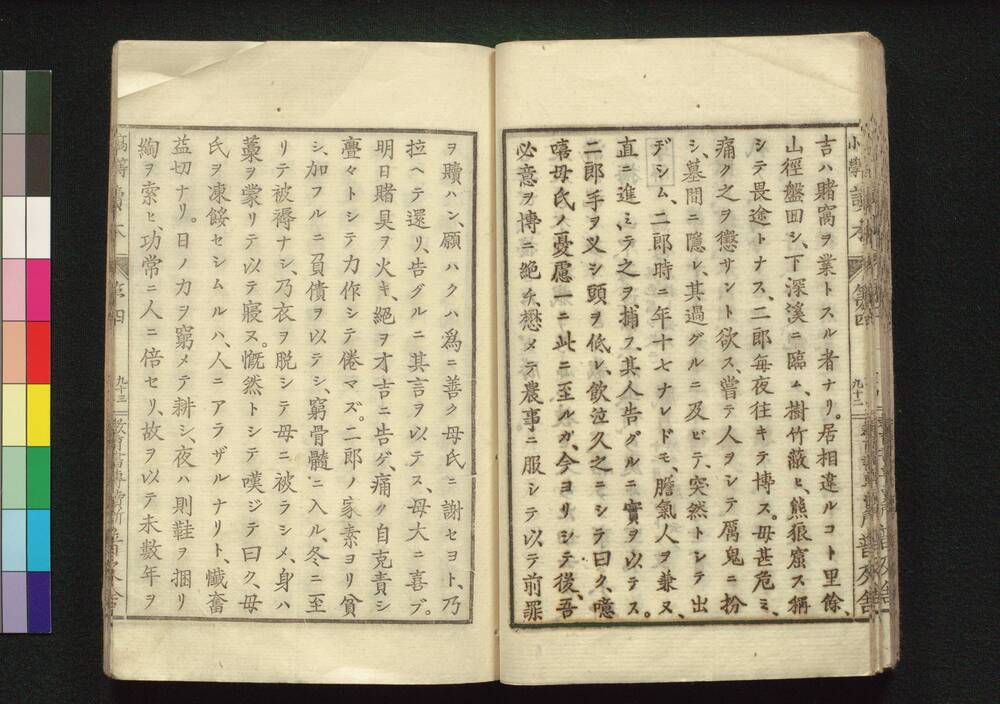 吉ハ賭窩ヲ業トスル者ナリ。居相違ルコト里餘、
山徑盤囘シ、下深溪ニ臨ム、樹竹蔽ヒ、熊狼窟ス稱
シテ畏途トナス、二郎每夜往キテ博ス。母甚危ミ、
痛ク之ヲ懲サント欲ス、嘗テ人ヲシテ厲鬼ニ扮
シ、墓間ニ隱レ、其過グルニ及ビテ、突然トシテ出
デシム、二郎時ニ年十七ナレドモ、膽氣人ヲ兼ヌ、
直ニ進ミテ之ヲ捕フ、其人告グルニ實ヲ以テス。
二郎手ヲ叉シ頭ヲ低レ、飮泣久之ニシテ曰ク、噫
嘻母氏ノ憂慮一ニ此ニ至ルガ、今ヨリシテ後、吾
必意ヲ博ニ絕チ、懋メテ農事ニ服シテ以テ前罪
九十二
ヲ贖ハン、願ハクハ爲ニ善ク母氏ニ謝セヨト、乃
拉ヘテ還リ、告グルニ其言ヲ以テス、母大ニ喜ブ。
明日賭具ヲ火キ、絕ヲ才吉ニ告ゲ、痛ク自克責シ
亹々トシテ力作シテ倦マズ。二郎ノ家素ヨリ貧
シ、加フルニ負債ヲ以テシ、窮骨髓ニ入ル、冬ニ至
リテ被褥ナシ、乃衣ヲ脱シテ母ニ被ラシメ、身ハ
藁ヲ蒙リテ以テ寢ヌ。慨然トシテ嘆ジテ曰ク、母
氏ヲ凍餒セシムルハ、人ニアラザルナリト、懺奮
益切ナリ。日ノ力ヲ窮メテ耕シ、夜ハ則鞋ヲ捆リ
綯ヲ索ヒ、功常ニ人ニ倍セリ、故ヲ以テ未數年ヲ
九十三